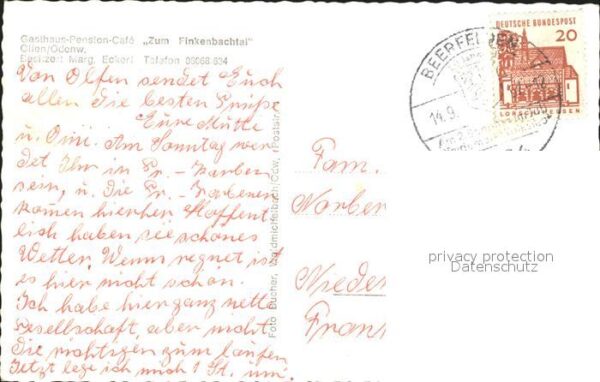 Gasthaus-Pension-Café „Zum Finkenbachtal"
Olfen/Odenw.
Besitzer: Marg. Eckert Telefon 06068-634
Von Olfen sendet Euch
allen die besten Grüße
Eure Mutter
u. Omi. Am Sonntag wer
det Ihr in Gr. - Karben
sein, u. die Gr. - Karbener
kommen hierher. Hoffent
lich haben sie schönes
Wetter. Wenn regnet ist
es hier nicht schön.
Ich habe hier ganz nette
Gesellschaft aber nicht
die richtigen zum laufen
Jetzt lege ich mich 1 St. um
Foto Bucher,
Fam.
Norber
Niede
Fran
BEERFELDEN
14.9.
DEUTSCHE BUNDESPOST
20
LORSCH HESSEN
privacy protection
Datenschutz